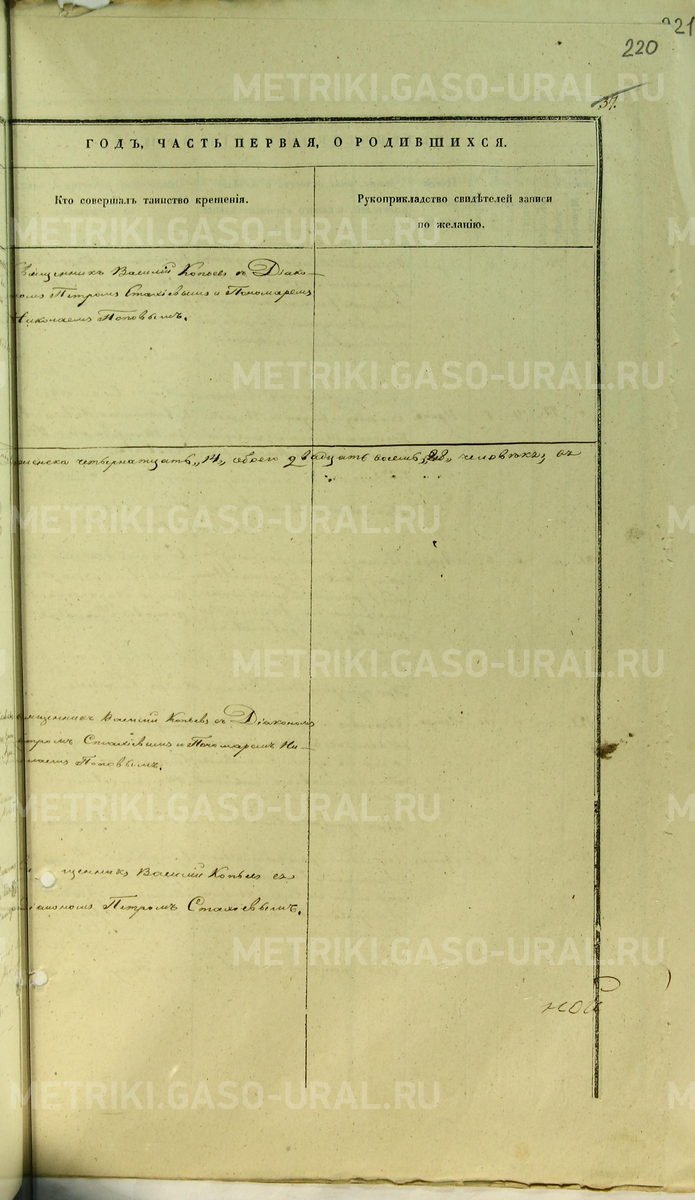 221
220
37.
ГОДЪ, ЧАСТЬ ПЕРВАЯ, О РОДИВШИХСЯ.
Кто совершалъ таинство крещенія.
Рукоприкладство свидѣтелей записи
по желанію.
Священникъ Василій Копьевъ съ Діако-
номъ Петромъ Стахіевымъ и Пономаремъ
Николаемъ Поповымъ.
женска четырнатцать „14„ обоего двадцать восемь „28„ человѣкъ, въ
священникъ Василій Копьевъ съ Діакономъ
Петромъ Стахіевымъ и Пономаремъ Ни-
колаемъ Поповымъ.
щенникъ Василій Копьевъ съ
Діакономъ Петромъ Стахіевымъ.
ной
METRIKI.GASO-URAL.RU
METRIKI.GASO-URAL.RU
METRIKI.GASO-URAL.RU
METRIKI.GASO-URAL.RU
METRIKI.GASO-URAL.RU
METRIKI.GASO-URAL.RU
METRIKI.GASO-URAL.RU
METRIKI.GASO-URAL.RU